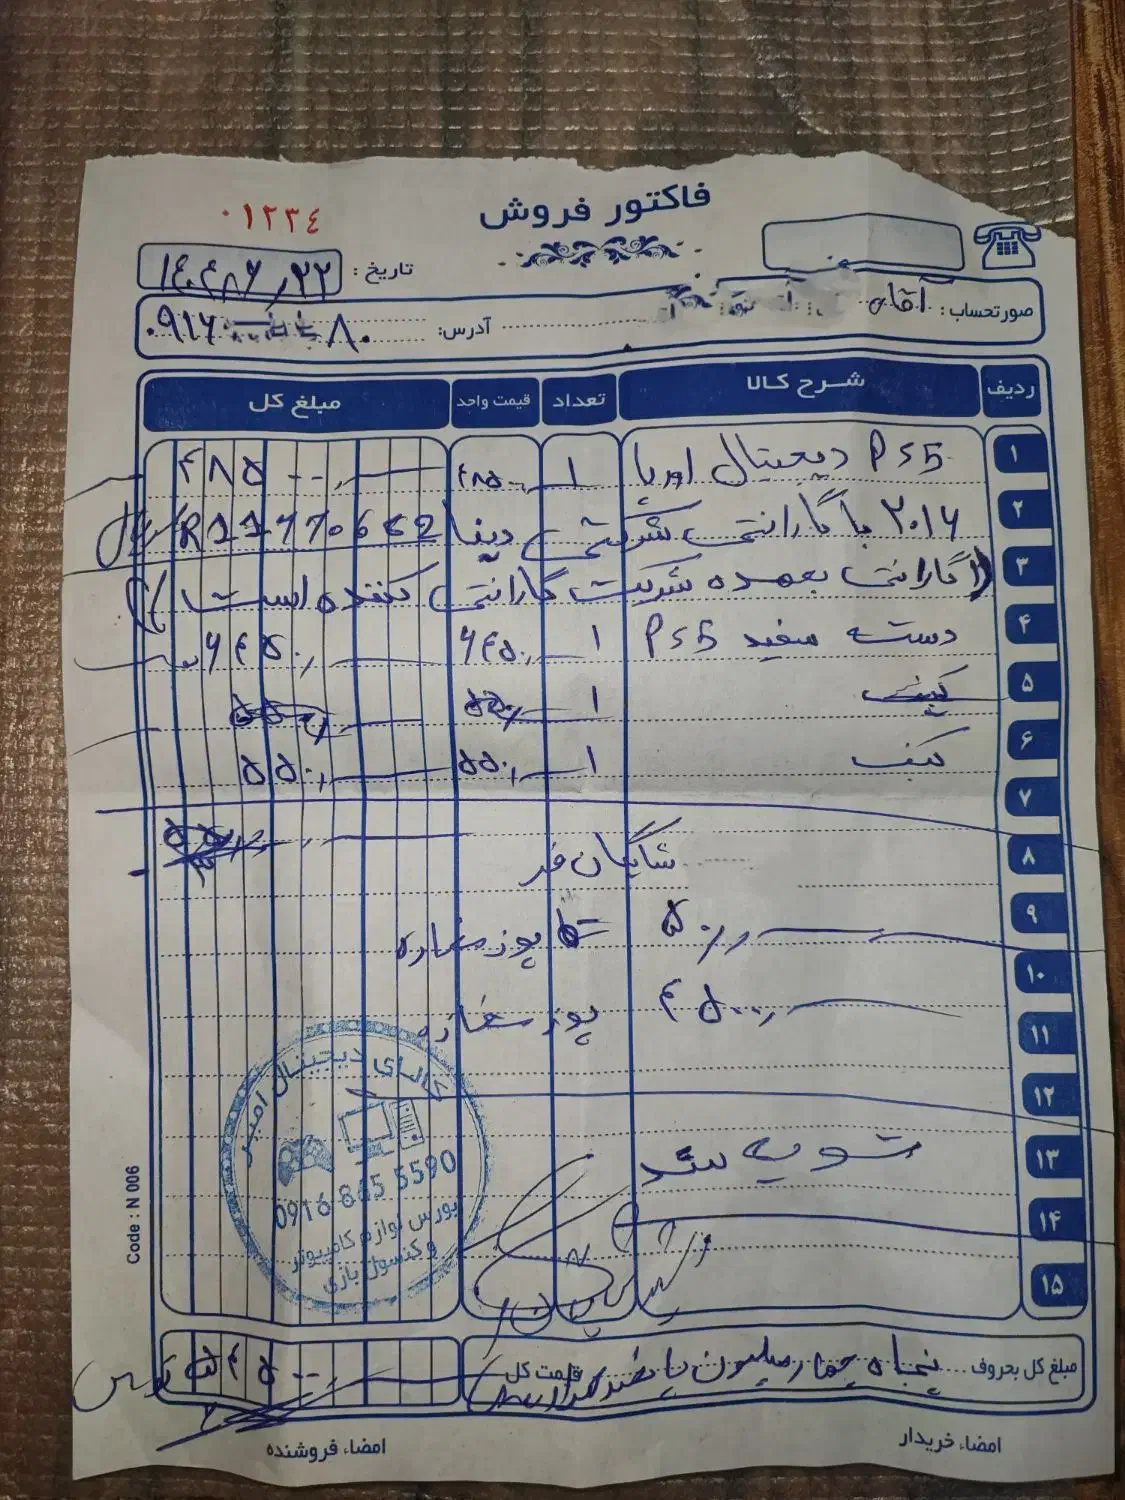 فاکتور فروش
۰۱۲۳٤
تاریخ : ۱٤۰٤٫۰۶٫۲۲
صورتحساب : آقای
آدرس: ۰۹۱۶ ۸۰
ردیف شرح کالا تعداد قیمت واحد مبلغ کل
۱ PS5 دیجیتال اروپا ۱ ۴۸۵۰۰ ۴۸۵۰۰
۲ ۲۰۱۶ با گارانتی شرکتی دینا
۳ (گارانتی بعهده شرکت گارانتی کننده است)
۴ دسته سفید PS5 ۱ ۶٤۵۰ ۶٤۵۰
۵ کیف ۱ ۵۵۰
۶ کیف ۱ ۵۵۰ ۵۵۰
۷
۸ شایگان فر
۹ ۵۰ پوز مغازه
۱۰
۱۱ ۴۵۰۰ پوز مغازه
۱۲
۱۳ تسویه شد
۱۴
۱۵
کالای دیجیتال امیر
0916 865 5590
بورس لوازم کامپیوتر
و کنسول بازی
Code : N 006
مبلغ کل بحروف پنجاه چهار میلیون پانصد هزار قیمت کل ۵۴۵۰۰
امضاء خریدار
امضاء فروشنده